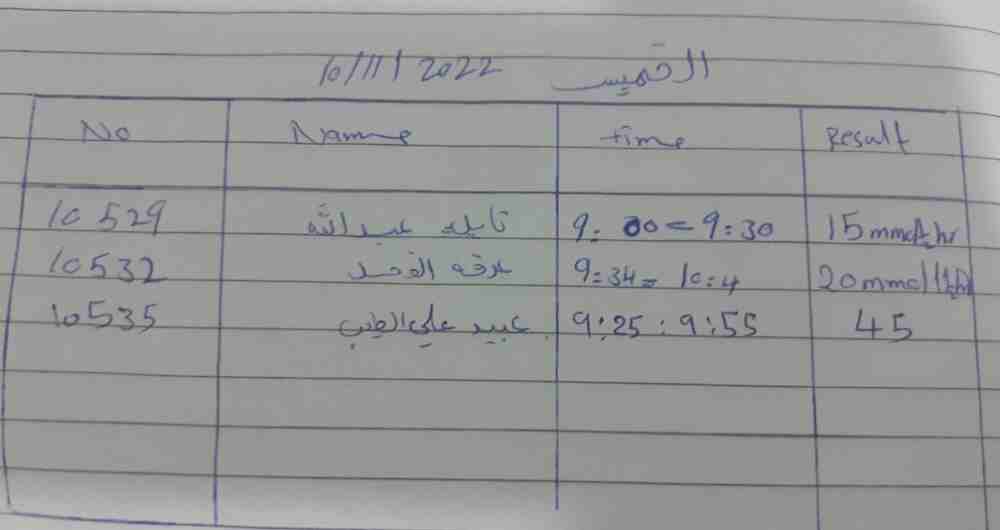 الخميس 10/11/2022
No Name time Result
10529 نايله عبدالله 9:00 = 9:30 15mm/1hr
10532 9:34 = 10:4 20mm/1hr
10535 عبيد علي الطيب 9:25 : 9:55 45